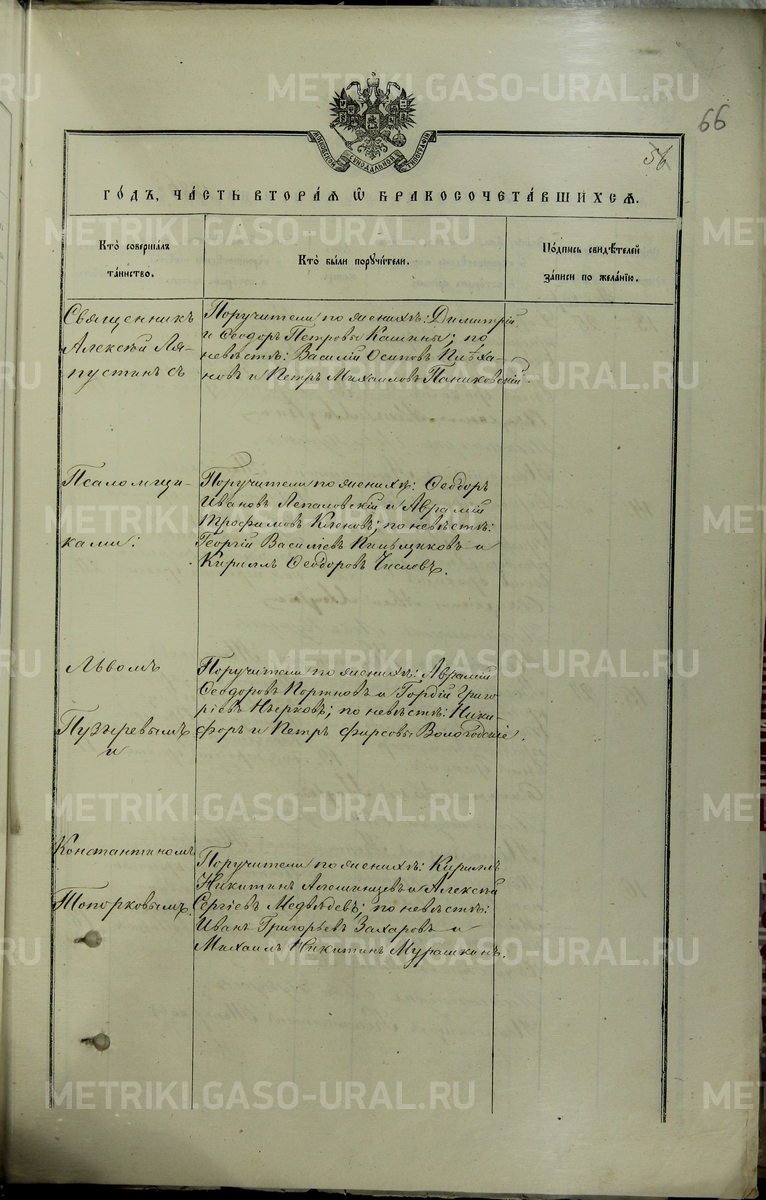 66
56
МОСКОВСКОЙ СѴНОДАЛЬНОЙ ТИПОГРАФІИ
ГО́ДЪ, ЧА́СТЬ ВТОРА́Я Ѿ БРАКОСОЧЕТА́ВШИХСЯ.
Кто̀ соверша́лъ
та́инство.
Кто̀ бы́ли порꙋчи́тели.
По́дпись свидѣ́телей
за́писи по жела́нїю.
Священникъ
Алексѣй Ля-
пустинъ съ
Поручители по женихѣ: Димитрій
и Ѳеодоръ Петровы Кашины; по
невѣстѣ: Василій Осиповъ
новъ и Петръ Михаиловъ Паниковскій.
Псаломщи-
ками:
Поручители по женихѣ: Ѳеодоръ
Ивановъ Лепаловскій и Аврамій
Трофимовъ Клюковъ; по невѣстѣ:
Георгій Василіевъ Пильщиковъ и
Кириллъ Ѳеодоровъ Числевъ.
Львомъ
Пузыревымъ
и
Поручители по женихѣ: Аврамій
Ѳеодоровъ Портновъ и Гордій Григо
ріевъ; по невѣстѣ: Ники-
форъ и Петръ Фирсовы Вологодскіе.
Константиномъ
Топорковымъ.
Поручители по женихѣ: Кириллъ
Никитинъ и Алексѣй
Сергіевъ Медвѣдевъ; по невѣстѣ:
Иванъ Григорьевъ Захаровъ и
Михаилъ Никитинъ Мурашкинъ.
METRIKI.GASO-URAL.RU